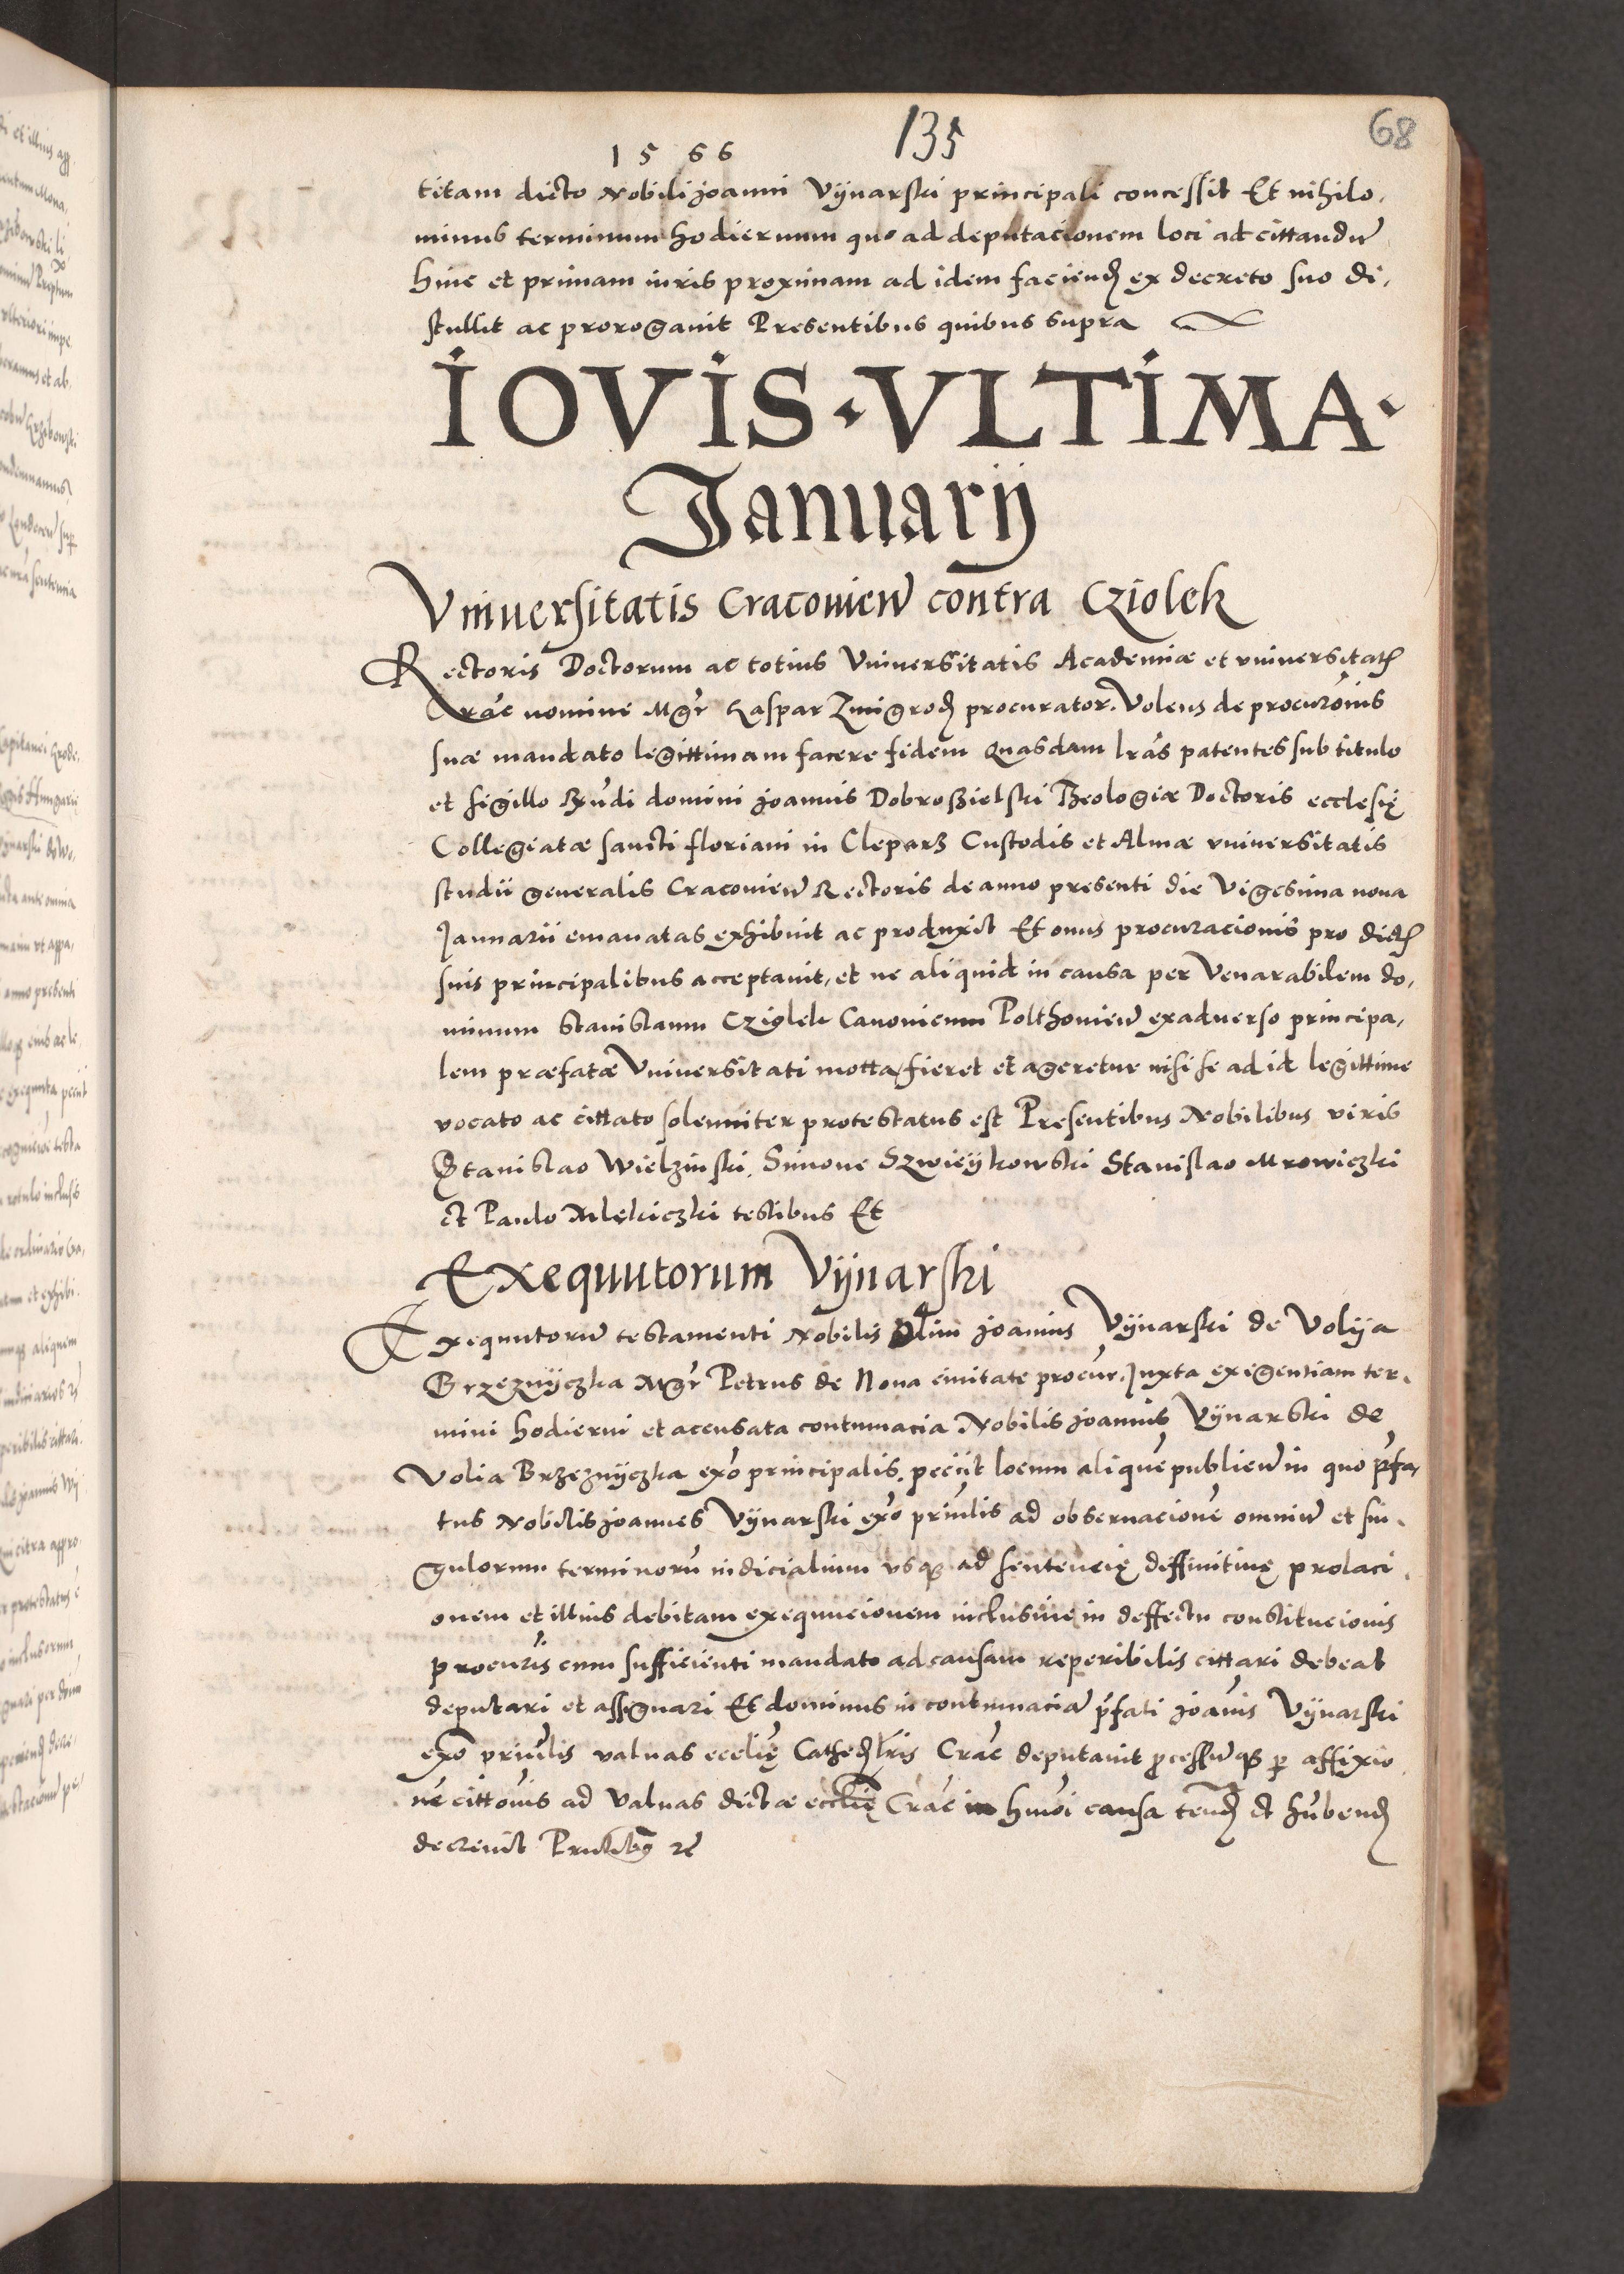 135
68
1566
titam dicto Nobili Joanni Vÿnarski principali concessit Et nihilo,
minus terminum hodiernum quo ad deputacionem loci ad cittandū
hinc et primam iuris proximam ad idem faciend ex decreto suo di,
stullit ac prorogavit Presentibus quibus supra
IOVIS · VLTIMA ·
Januarij
Vniversitatis Cracovien̄ contra Cziolek
Rectoris Doctorum ac totius Vniversitatis Academiæ et universitat
Crac̄ nomine Mgr̄ Kaspar Zmigrod procurator. Volens de procurōnis
suæ mandato legittimam facere fidem Quasdam lrās patentes sub titulo
et sigillo Rndi domini Joannis Dobroszielski Theologiæ Doctoris ecclesię
Collegiatæ sancti floriani in Cleparz Custodis et Almæ universitatis
studii generalis Cracovien̄ Rectoris de anno presenti die Vigesima nona
Januarii emanatas exhibuit ac produxit Et onus procuracionis pro dict
suis principalibus acceptavit, et ne aliquid in causa per Venarabilem do,
minum Stanislaum Cziolek Canonicum Polthovien̄ ex adverso principa,
lem præfatæ Vniversitati motta, fieret et ageretur nisi se ad id legittime
vocato ac cittato solenniter protestatus est Presentibus Nobilibus viris
Stanislao Wielzinski, Simone Szwieÿkowski Stanislao Mrowiczki
et Paulo Mlekiczki testibus Et
Exequutorum Vÿnarski
Exequutorū testamenti Nobilis Olim Joannis Vÿnarski de Volÿa
Brzeznÿczka Mgr̄ Petrus de Nova civitate procur̄. Juxta exigentiam ter,
mini hodierni et accusata contumacia Nobilis Joannis Vÿnarski de
Volia Brzeznÿczka exō principalis, peciit locum aliquē publicū in quo p̄fa,
tus Nobilis Joannes Vÿnarski exō prin̄lis ad observacionē omniū et sin,
gulorum terminorū iudicialium usq ad sentencię diffinitivę prolaci,
onem et illius debitam exequucionem inclusive in deffectu constitucionis
procur̄is cum sufficienti mandato ad causam reperibilis cittari debeat
deputari et assignari Et dominus in contumaciā p̄fati Joan̄is Vÿnarski
exō prin̄lis valvas eccl̄ię Cathedr̄lis Crac̄ deputavit p̄cessūq p affixio
nē cittōnis ad valvas dictæ eccl̄ię Crac̄ in hm̄oi causa tend et hābend
decrevit Pn̄tibus